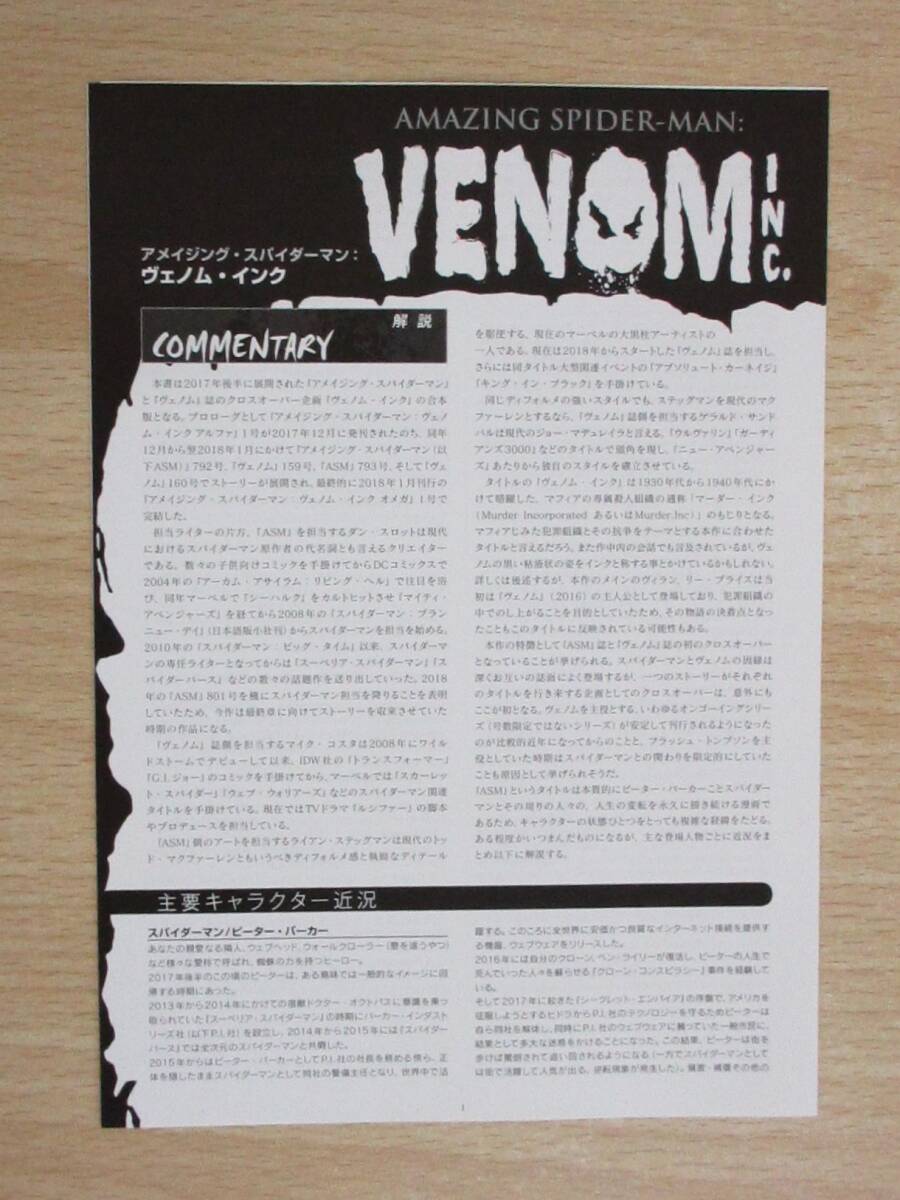 AMAZING SPIDER-MAN:
VENOM INC.
アメイジング・スパイダーマン：
ヴェノム・インク
解説
COMMENTARY
本書は2017年後半に展開された『アメイジング・スパイダーマン』
と『ヴェノム』誌のクロスオーバー企画『ヴェノム・インク』の合本
版となる。プロローグとして『アメイジング・スパイダーマン：ヴェノ
ム・インク アルファ』1号が2017年12月に発刊されたのち、同年
12月から翌2018年1月にかけて『アメイジング・スパイダーマン（以
下ASM）』792号、『ヴェノム』159号、『ASM』793号、そして『ヴェ
ノム』160号でストーリーが展開され、最終的に2018年1月刊行の
『アメイジング・スパイダーマン：ヴェノム・インク オメガ』1号で
完結した。
担当ライターの片方、『ASM』を担当するダン・スロットは現代
におけるスパイダーマン原作者の代名詞とも言えるクリエイター
である。数々の子供向けコミックを手掛けてからDCコミックスで
2004年の『アーカム・アサイラム：リビング・ヘル』で注目を浴
び、同年マーベルで『シーハルク』をカルトヒットさせ『マイティ・
アベンジャーズ』を経てから2008年の『スパイダーマン：ブラン
ニュー・デイ』（日本語版小社刊）からスパイダーマンを担当を始める。
2010年の『スパイダーマン：ビッグ・タイム』以来、スパイダーマ
ンの専任ライターとなってからは『スーペリア・スパイダーマン』『ス
パイダーバース』などの数々の話題作を送り出していった。2018
年の『ASM』801号を機にスパイダーマン担当を降りることを表明
していたため、今作は最終章に向けてストーリーを収束させていた
時期の作品になる。
『ヴェノム』誌側を担当するマイク・コスタは2008年にワイル
ドストームでデビューして以来、IDW社の『トランスフォーマー』
『G.I.ジョー』のコミックを手掛けてから、マーベルでは『スカーレッ
ト・スパイダー』『ウェブ・ウォリアーズ』などのスパイダーマン関連
タイトルを手掛けている。現在ではTVドラマ『ルシファー』の脚本
やプロデュースを担当している。
『ASM』側のアートを担当するライアン・ステッグマンは現代のトッ
ド・マクファーレンともいうべきディフォルメ感と執拗なディテール
を駆使する、現在のマーベルの大黒柱アーティストの
一人である。現在は2018年からスタートした『ヴェノム』誌を担当し、
さらには同タイトル大型関連イベントの『アブソリュート・カーネイジ』
『キング・イン・ブラック』を手掛けている。
同じディフォルメの強いスタイルでも、ステッグマンを現代のマク
ファーレンとするなら、『ヴェノム』誌側を担当するゲラルド・サンド
バルは現代のジョー・マデュレイラと言える。『ウルヴァリン』『ガーディ
アンズ3000』などのタイトルで頭角を現し、『ニュー・アベンジャー
ズ』あたりから独自のスタイルを確立させている。
タイトルの『ヴェノム・インク』は1930年代から1940年代にか
けて暗躍した、マフィアの専属殺人組織の通称「マーダー・インク
（Murder Incorporated あるいはMurder,Inc）」のもじりとなる。
マフィアじみた犯罪組織とその抗争をテーマとする本作に合わせた
タイトルと言えるだろう。また作中内の会話でも言及されているが、ヴェ
ノムの黒い粘液状の姿をインクと称する事とかけているかもしれない。
詳しくは後述するが、本作のメインのヴィラン、リー・プライスは当
初は『ヴェノム』（2016）の主人公として登場しており、犯罪組織の
中でのし上がることを目的としていたため、その物語の決着点となっ
たこともこのタイトルに反映されている可能性もある。
本作の特徴として『ASM』誌と『ヴェノム』誌の初のクロスオーバー
となっていることが挙げられる。スパイダーマンとヴェノムの因縁は
深くお互いの誌面によく登場するが、一つのストーリーがそれぞれ
のタイトルを行き来する企画としてのクロスオーバーは、意外にも
ここが初となる。ヴェノムを主役とする、いわゆるオンゴーイングシリー
ズ（号数限定ではないシリーズ）が安定して刊行されるようになった
のが比較的近年になってからのことと、フラッシュ・トンプソンを主
役としていた時期はスパイダーマンとの関わりを限定的にしていた
ことも原因として挙げられそうだ。
『ASM』というタイトルは本質的にピーター・パーカーことスパイダー
マンとその周りの人々の、人生の変転を永久に描き続ける漫画であ
るため、キャラクターの状態ひとつをとっても複雑な経緯をたどる。
ある程度かいつまんだものになるが、主な登場人物ごとに近況をま
とめ以下に解説する。
主要キャラクター近況
スパイダーマン/ピーター・パーカー
あなたの親愛なる隣人、ウェブヘッド、ウォールクローラー（壁を這うやつ）
など様々な愛称で呼ばれ、蜘蛛の力を持つヒーロー。
2017年後半のこの頃のピーターは、ある意味では一般的なイメージに回
帰する時期にあった。
2013年から2014年にかけての宿敵ドクター・オクトパスに意識を乗っ
取られていた『スーペリア・スパイダーマン』の時期にパーカー・インダスト
リーズ社（以下P.I.社）を設立し、2014年から2015年には『スパイダー
バース』では全次元のスパイダーマンと共闘した。
2015年からはピーター・パーカーとしてP.I.社の社長を務める傍ら、正
体を隠したままスパイダーマンとして同社の警備主任となり、世界中で活
躍する。このころに全世界に安価かつ良質なインターネット接続を提供す
る機器、ウェブウェアをリリースした。
2016年には自分のクローン、ベン・ライリーが復活し、ピーターの人生で
死んでいった人々を蘇らせる『クローン・コンスピラシー』事件を経験して
いる。
そして2017年に起きた『シークレット・エンパイア』の序盤で、アメリカを
征服しようとするヒドラからP.I.社のテクノロジーを守るためピーターは
自ら同社を解体し、同時にP.I.社のウェブウェアに頼っていた一般市民に、
結果として多大な迷惑をかけることになった。この結果、ピーターは街を
歩けば罵倒されて追い回されるようになる（一方でスパイダーマンとして
は街で活躍して人気が出る、逆転現象が発生した）。賠償・補償その他の
1